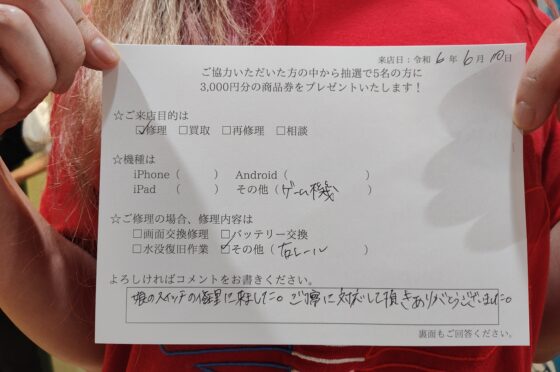 来店日：令和 6 年 6 月 10 日
ご協力いただいた方の中から抽選で5名の方に
3,000円分の商品券をプレゼントいたします！
☆ご来店目的は
☑修理 □買取 □再修理 □相談
☆機種は
iPhone （ ） Android（ ）
iPad （ ） その他（ゲーム機 ）
☆ご修理の場合、修理内容は
□画面交換修理 □バッテリー交換
□水没復旧作業 ☑その他（右レール ）
よろしければコメントをお書きください。
娘のスイッチの修理に来ました。ご丁寧に対応して頂きありがとうございました。
裏面もご回答ください。